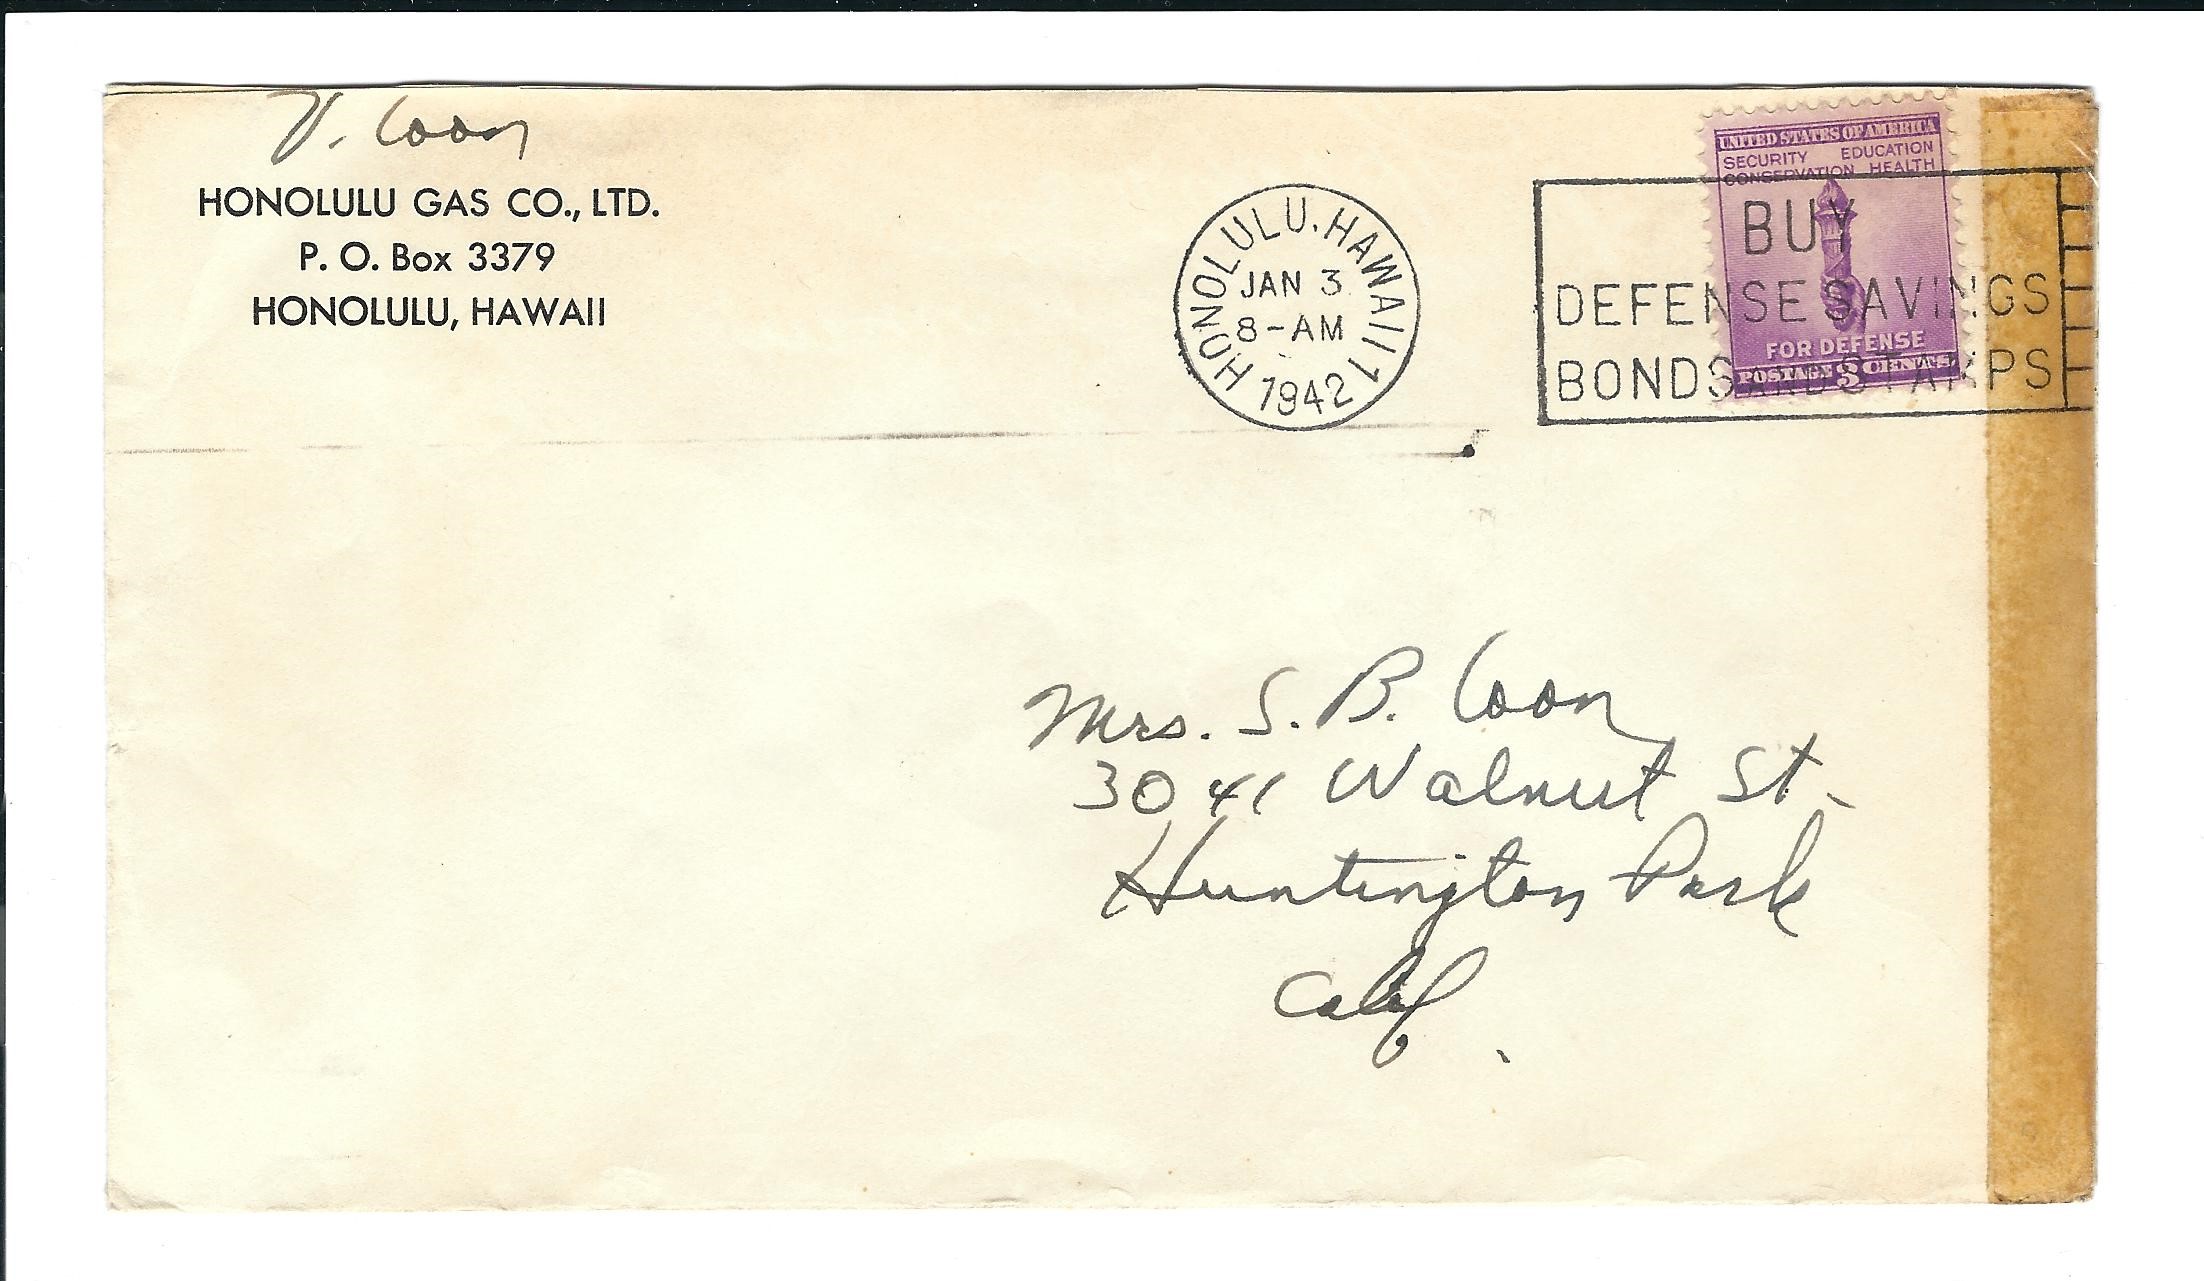 V. Coon
HONOLULU GAS CO., LTD.
P. O. Box 3379
HONOLULU, HAWAII
HONOLULU, HAWAII 1
JAN 3
8-AM
1942
UNITED STATES OF AMERICA
SECURITY EDUCATION
CONSERVATION HEALTH
FOR DEFENSE
POSTAGE 3 CENTS
BUY
DEFENSE SAVINGS
BONDS AND STAMPS
Mrs. S. B. Coon
3041 Walnut St.
Huntington Park
Calif.